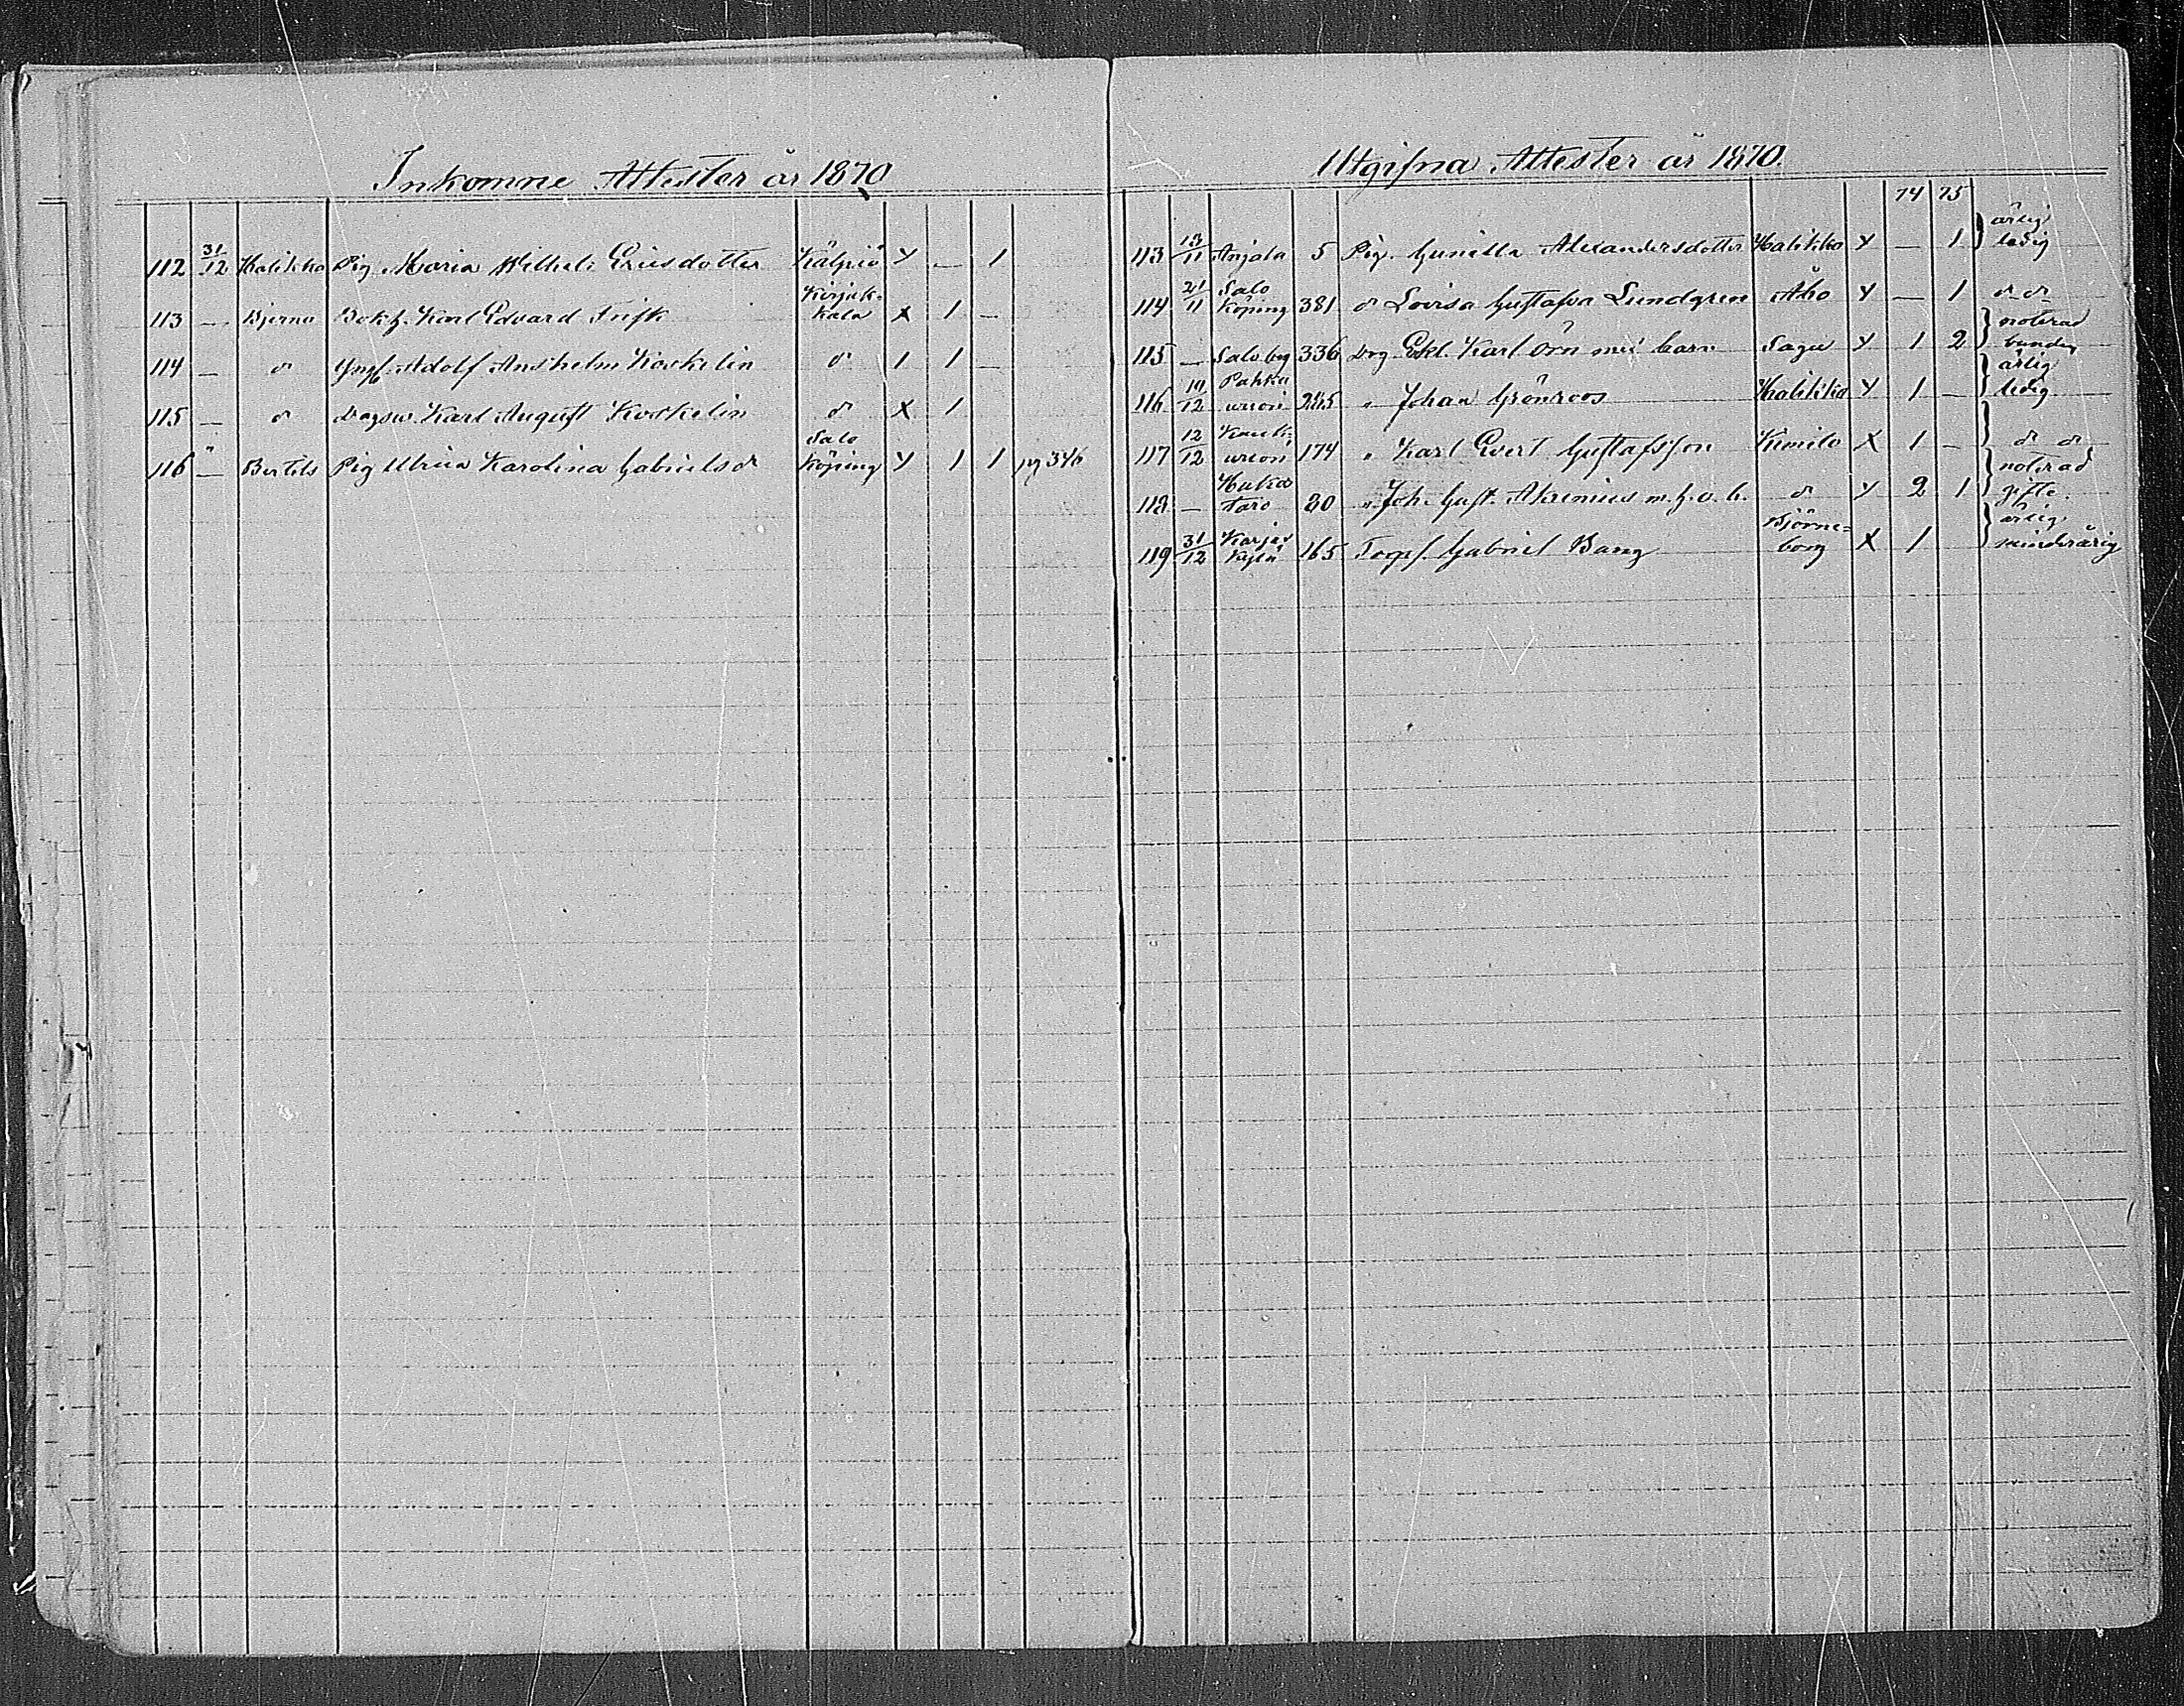 Inkomne Attester år 1870
112 31/12 Halikko Pig Maria Wilhelm Ericsdotter Kälpiö Y — 1
113 — Bjerno Bokh. Karl Edvard Frisk Kirjakkala X 1 —
114 — d:o Yngl. Adolf Anshelm Koskelin d:o 1 1 —
115 — d:o Dagsv. Karl August Koskelin d:o X 1
116 — Bertils Pig Ulrica Karolina Gabrielsdr Salo Köping Y 1 1 pg 346
Utgifna Attester år 1870.
74 75
113 13/11 Anjala 5 Pig. Gunilla Alexandersdotter Halikko Y — 1 ärlig ledig
114 21/11 Salo Köping 381 d:o Lovisa Gustafva Lundgren Åbo Y — 1 d:o d:o
115 — Salo by 336 Drg Karl Örn med barn Sagu Y 1 2 noterad
116 19/12 Pahka 285 " Johan Grönroos Halikko Y 1 — ärlig ledig
117 12/12 174 " Karl Evert Gustafsson Kimito X 1 — d:o d:o
118 — 20 " Joh. Gust. Alrenius m. h. o. b. d:o Y 2 1 noterad gifte.
119 31/12 Karjas Kylä 165 Torps. Gabriel Bang Björneborg X 1 ärlig minderårig